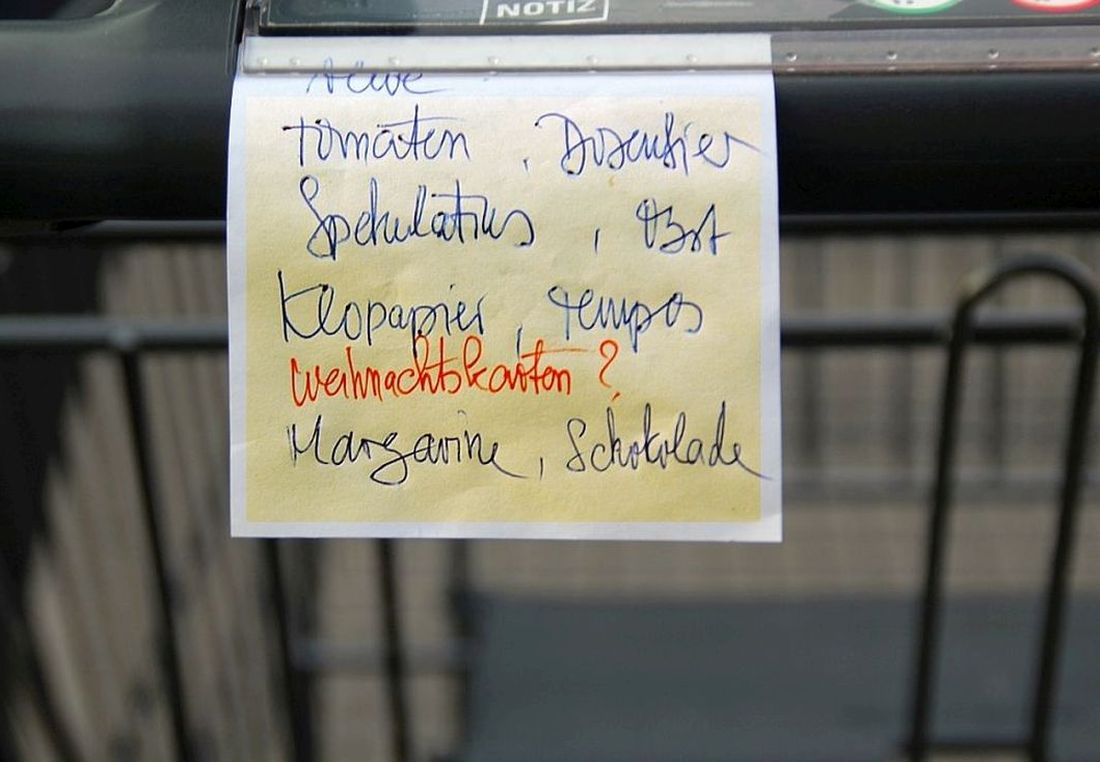 NOTIZ
Tomaten, Dosenbier
Spekulatius, Obst
Klopapier, Tempos
Weihnachtskarten?
Margarine, Schokolade